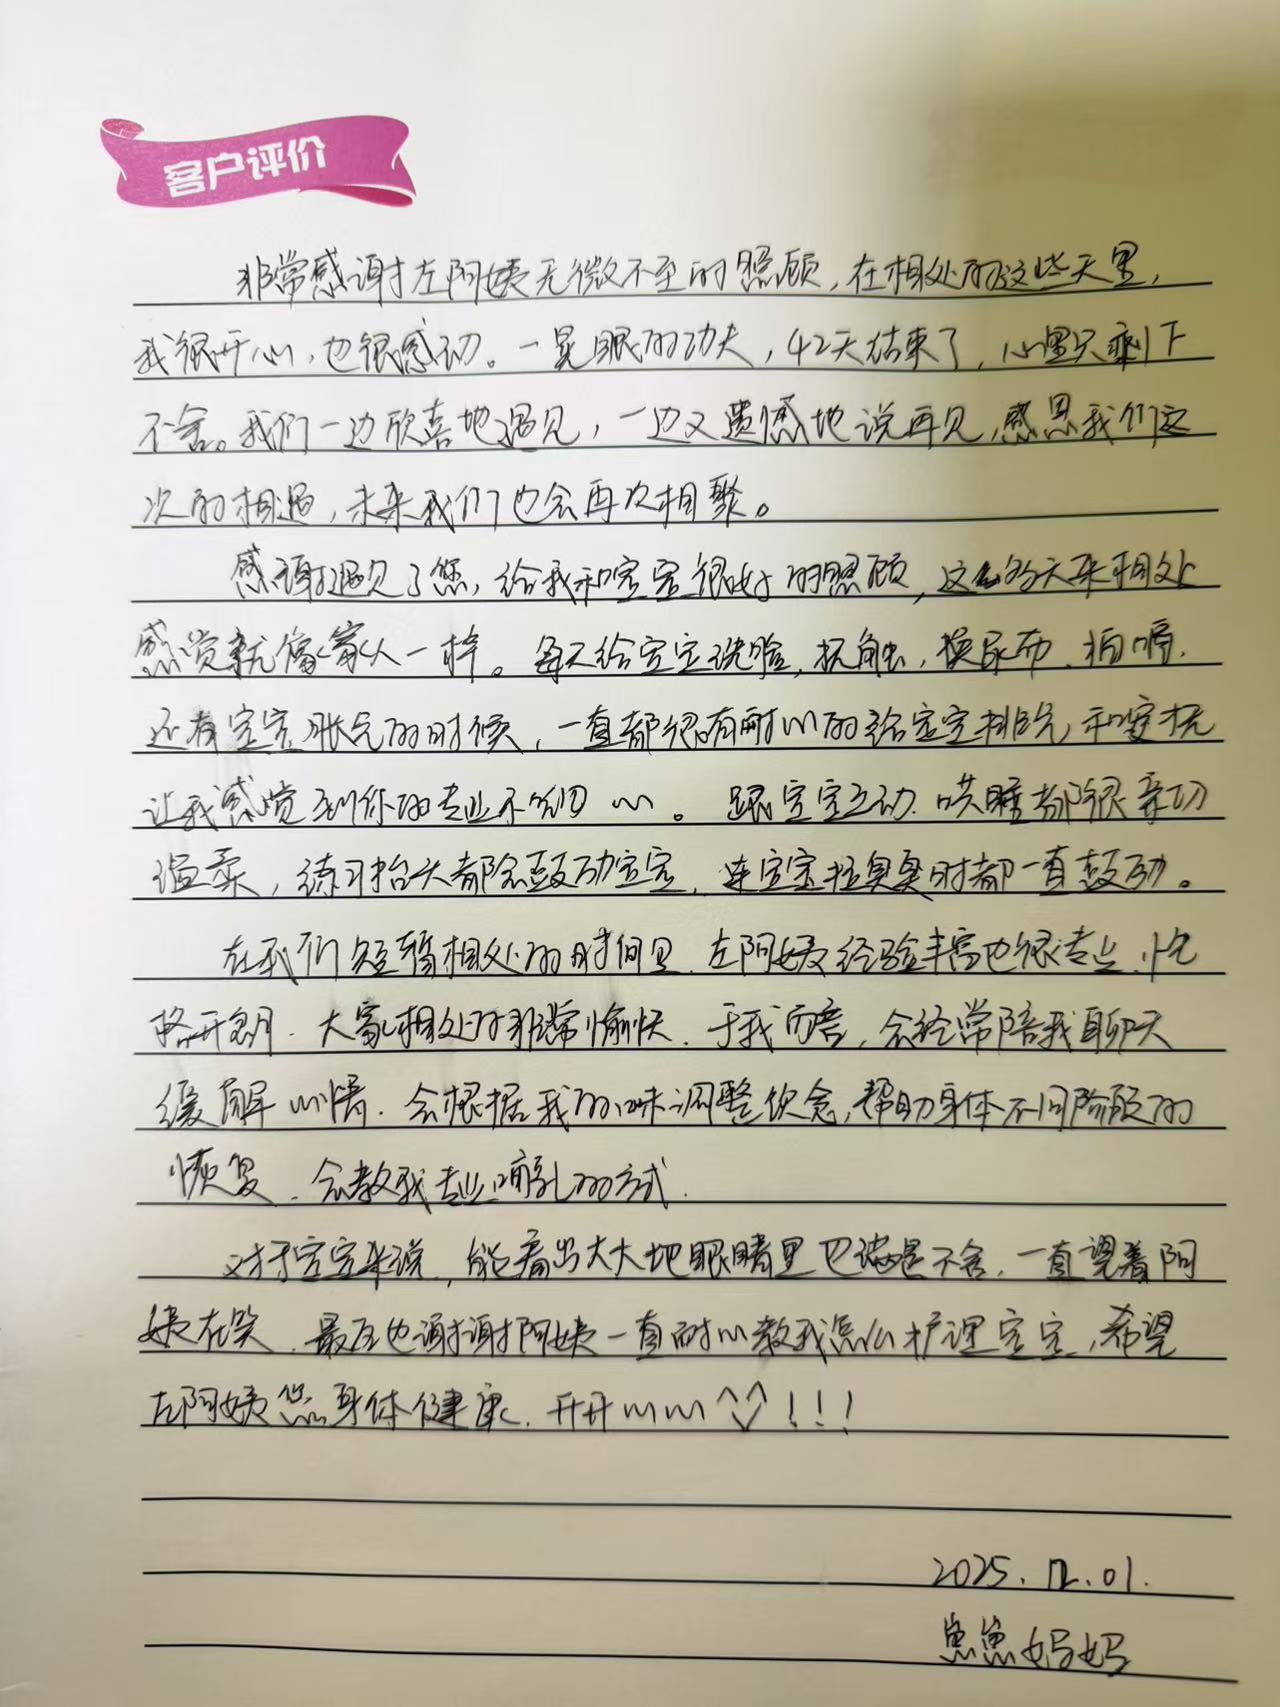 客户评价
非常感谢左阿姨无微不至的照顾,在相处的这些天里,
我很开心,也很感动。一晃眼的功夫,42天结束了,心里只剩下
不舍。我们一边欣喜地遇见,一边又遗憾地说再见,感恩我们这
次的相遇,未来我们也会再次相聚。
感谢遇见了您,给我和宝宝很好的照顾,这么多天来相处
感觉就像家人一样。每天给宝宝洗脸,抚触,换尿布、拍嗝,
还有宝宝胀气的时候,一直都很有耐心的给宝宝排气和安抚
让我感觉到你的专业和细心。跟宝宝互动、哄睡都很亲切
温柔,练习抬头都会鼓励宝宝,连宝宝拉臭臭时都一直鼓励。
在我们短暂相处的时间里,左阿姨经验丰富也很专业,性
格开朗,大家相处的非常愉快,于我而言,会经常陪我聊天
缓解心情,会根据我的口味调整饮食,帮助身体不同阶段的
恢复,会教我专业哺乳的方式,
对于宝宝来说,能看出大大地眼睛里也满是不舍,一直望着阿
姨在笑,最后也谢谢阿姨一直耐心教我怎么护理宝宝,希望
左阿姨您身体健康,开开心心^^!!!
2025.12.01.
妈妈